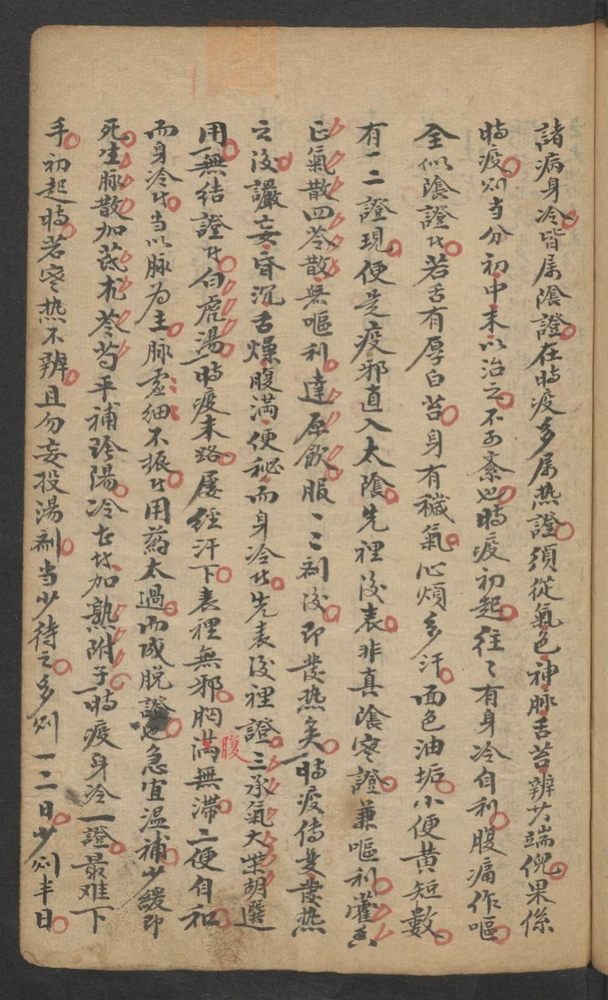 諸病身冷皆属陰證在時疫多属热證須從氣色神脉舌苔辨其端倪果係
時疫则当分初中末以治之不可紊也時疫初起往〻有身冷自利腹痛作嘔
全似陰證其若舌有厚白苔身有穢氣心煩多汗面色油垢小便黄短數
有一二證現便是疫邪直入太陰先裡後表非真陰寒證兼嘔利藿香
正氣散四苓散無嘔利達原飲服〻一剂後即發热矣時疫传变發热
之後讝妄昏沉舌燥腹满便秘而身冷者先表後裡證三承氣大柴胡選
用無结證者白虎湯時疫末路屡經汗下表裡無邪胸腹满無滞二便自和
而身冷者当以脉为主脉虚细不振者用药太過而成脱證也急宜温補少緩即
死生脉散加茋朮苓芍平補陰陽冷甚者加熟附子時疫身冷一證最难下
手初起時若寒热不辨且勿妄投湯剂当少待之多则一二日少则半日